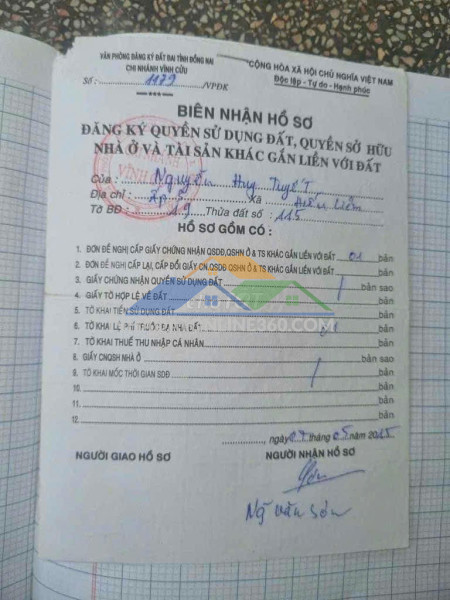 VĂN PHÒNG ĐĂNG KÝ ĐẤT ĐAI TỈNH ĐỒNG NAI
CHI NHÁNH VĨNH CỬU
Số: 1179 /VPĐK
CỘNG HÒA XÃ HỘI CHỦ NGHĨA VIỆT NAM
Độc lập - Tự do - Hạnh phúc
BIÊN NHẬN HỒ SƠ
ĐĂNG KÝ QUYỀN SỬ DỤNG ĐẤT, QUYỀN SỞ HỮU
NHÀ Ở VÀ TÀI SẢN KHÁC GẮN LIỀN VỚI ĐẤT
Của: Nguyễn Huy Tuyết
Địa chỉ: Ấp 5 Xã Hiếu Liêm
Tờ BĐ: 19 Thửa đất số: 115
HỒ SƠ GỒM CÓ:
1. ĐƠN ĐỀ NGHỊ CẤP GIẤY CHỨNG NHẬN QSDĐ,QSHN Ở & TS KHÁC GẮN LIỀN VỚI ĐẤT 01 bản
2. ĐƠN ĐỀ NGHỊ CẤP LẠI, CẤP ĐỔI GIẤY CN,QSDĐ QSHN Ở & TS KHÁC GẮN LIỀN VỚI ĐẤT bản
3. GIẤY CHỨNG NHẬN QUYỀN SỬ DỤNG ĐẤT bản sao
4. GIẤY TỜ HỢP LỆ VỀ ĐẤT bản
5. TỜ KHAI TIỀN SỬ DỤNG ĐẤT bản
6. TỜ KHAI LỆ PHÍ TRƯỚC BẠ NHÀ ĐẤT 01 bản
7. TỜ KHAI THUẾ THU NHẬP CÁ NHÂN bản
8. GIẤY CNQSH NHÀ Ở bản sao
9. TỜ KHAI MỐC THỜI GIAN SDĐ bản
10. bản
11. bản
12. bản
ngày 07 tháng 05 năm 2015
NGƯỜI GIAO HỒ SƠ NGƯỜI NHẬN HỒ SƠ
Ng văn Sơn